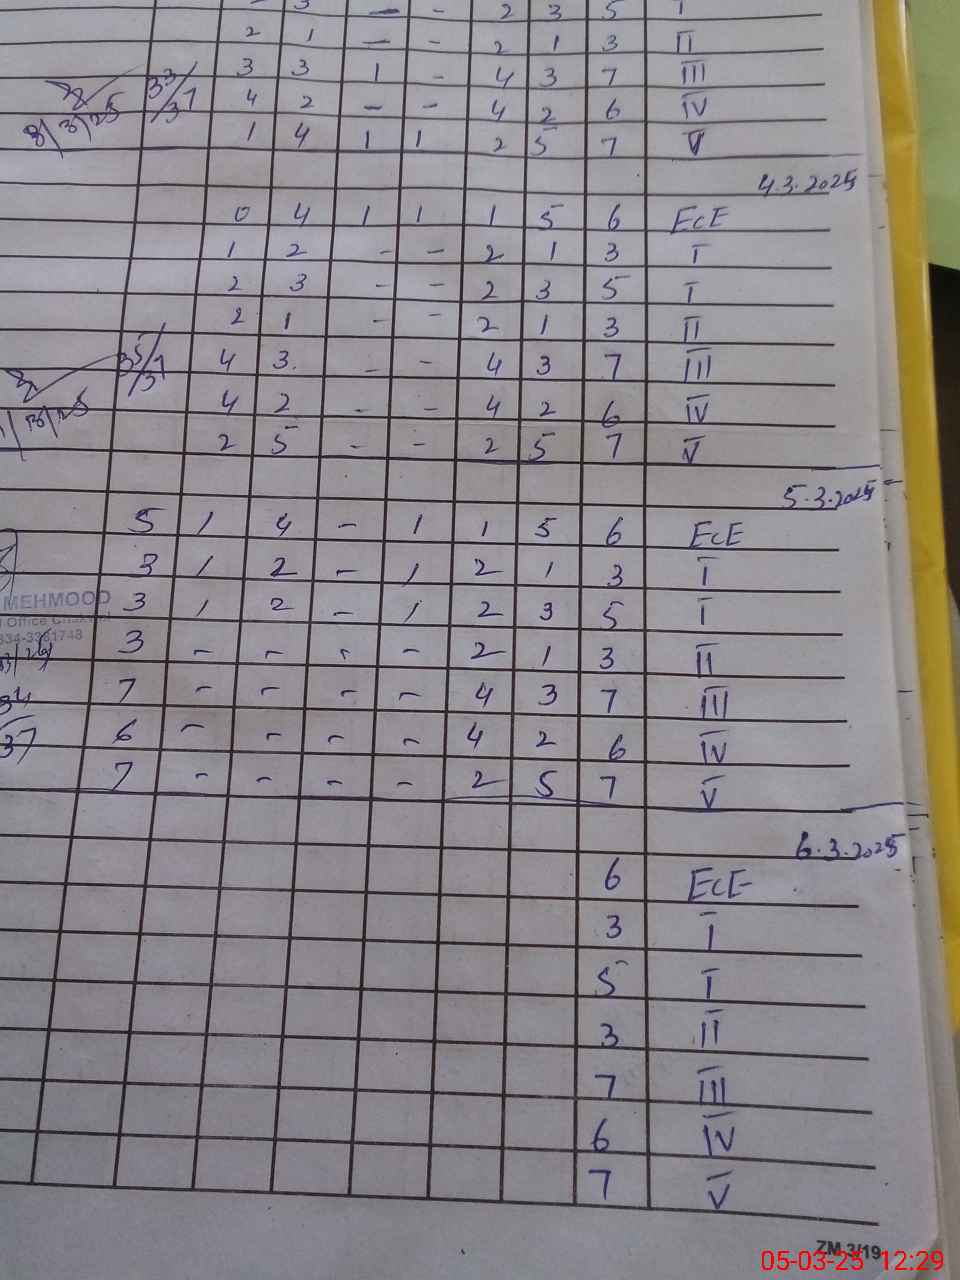 3 — - 2 3 5 I
2 1 — - 2 1 3 II
3 3 1 - 4 3 7 III
33/37 4 2 - - 4 2 6 IV
3/3/25 1 4 1 1 2 5 7 V
4.3.2025
0 4 1 1 1 5 6 EcE
1 2 - - 2 1 3 I
2 3 - - 2 3 5 I
2 1 - - 2 1 3 II
35/37 4 3. - - 4 3 7 III
4 2 - - 4 2 6 IV
2 5 - - 2 5 7 V
5.3.2025
5 1 4 - 1 1 5 6 EcE
3 1 2 - 1 2 1 3 I
MEHMOOD
3 1 2 - 1 2 3 5 I
334-3381748
3 - - - - 2 1 3 II
34 7 - - - - 4 3 7 III
37 6 - - - - 4 2 6 IV
7 - - - - 2 5 7 V
6.3.2025
6 EcE
3 I
5 I
3 II
7 III
6 IV
7 V
ZM 3/19
05-03-25 12:29